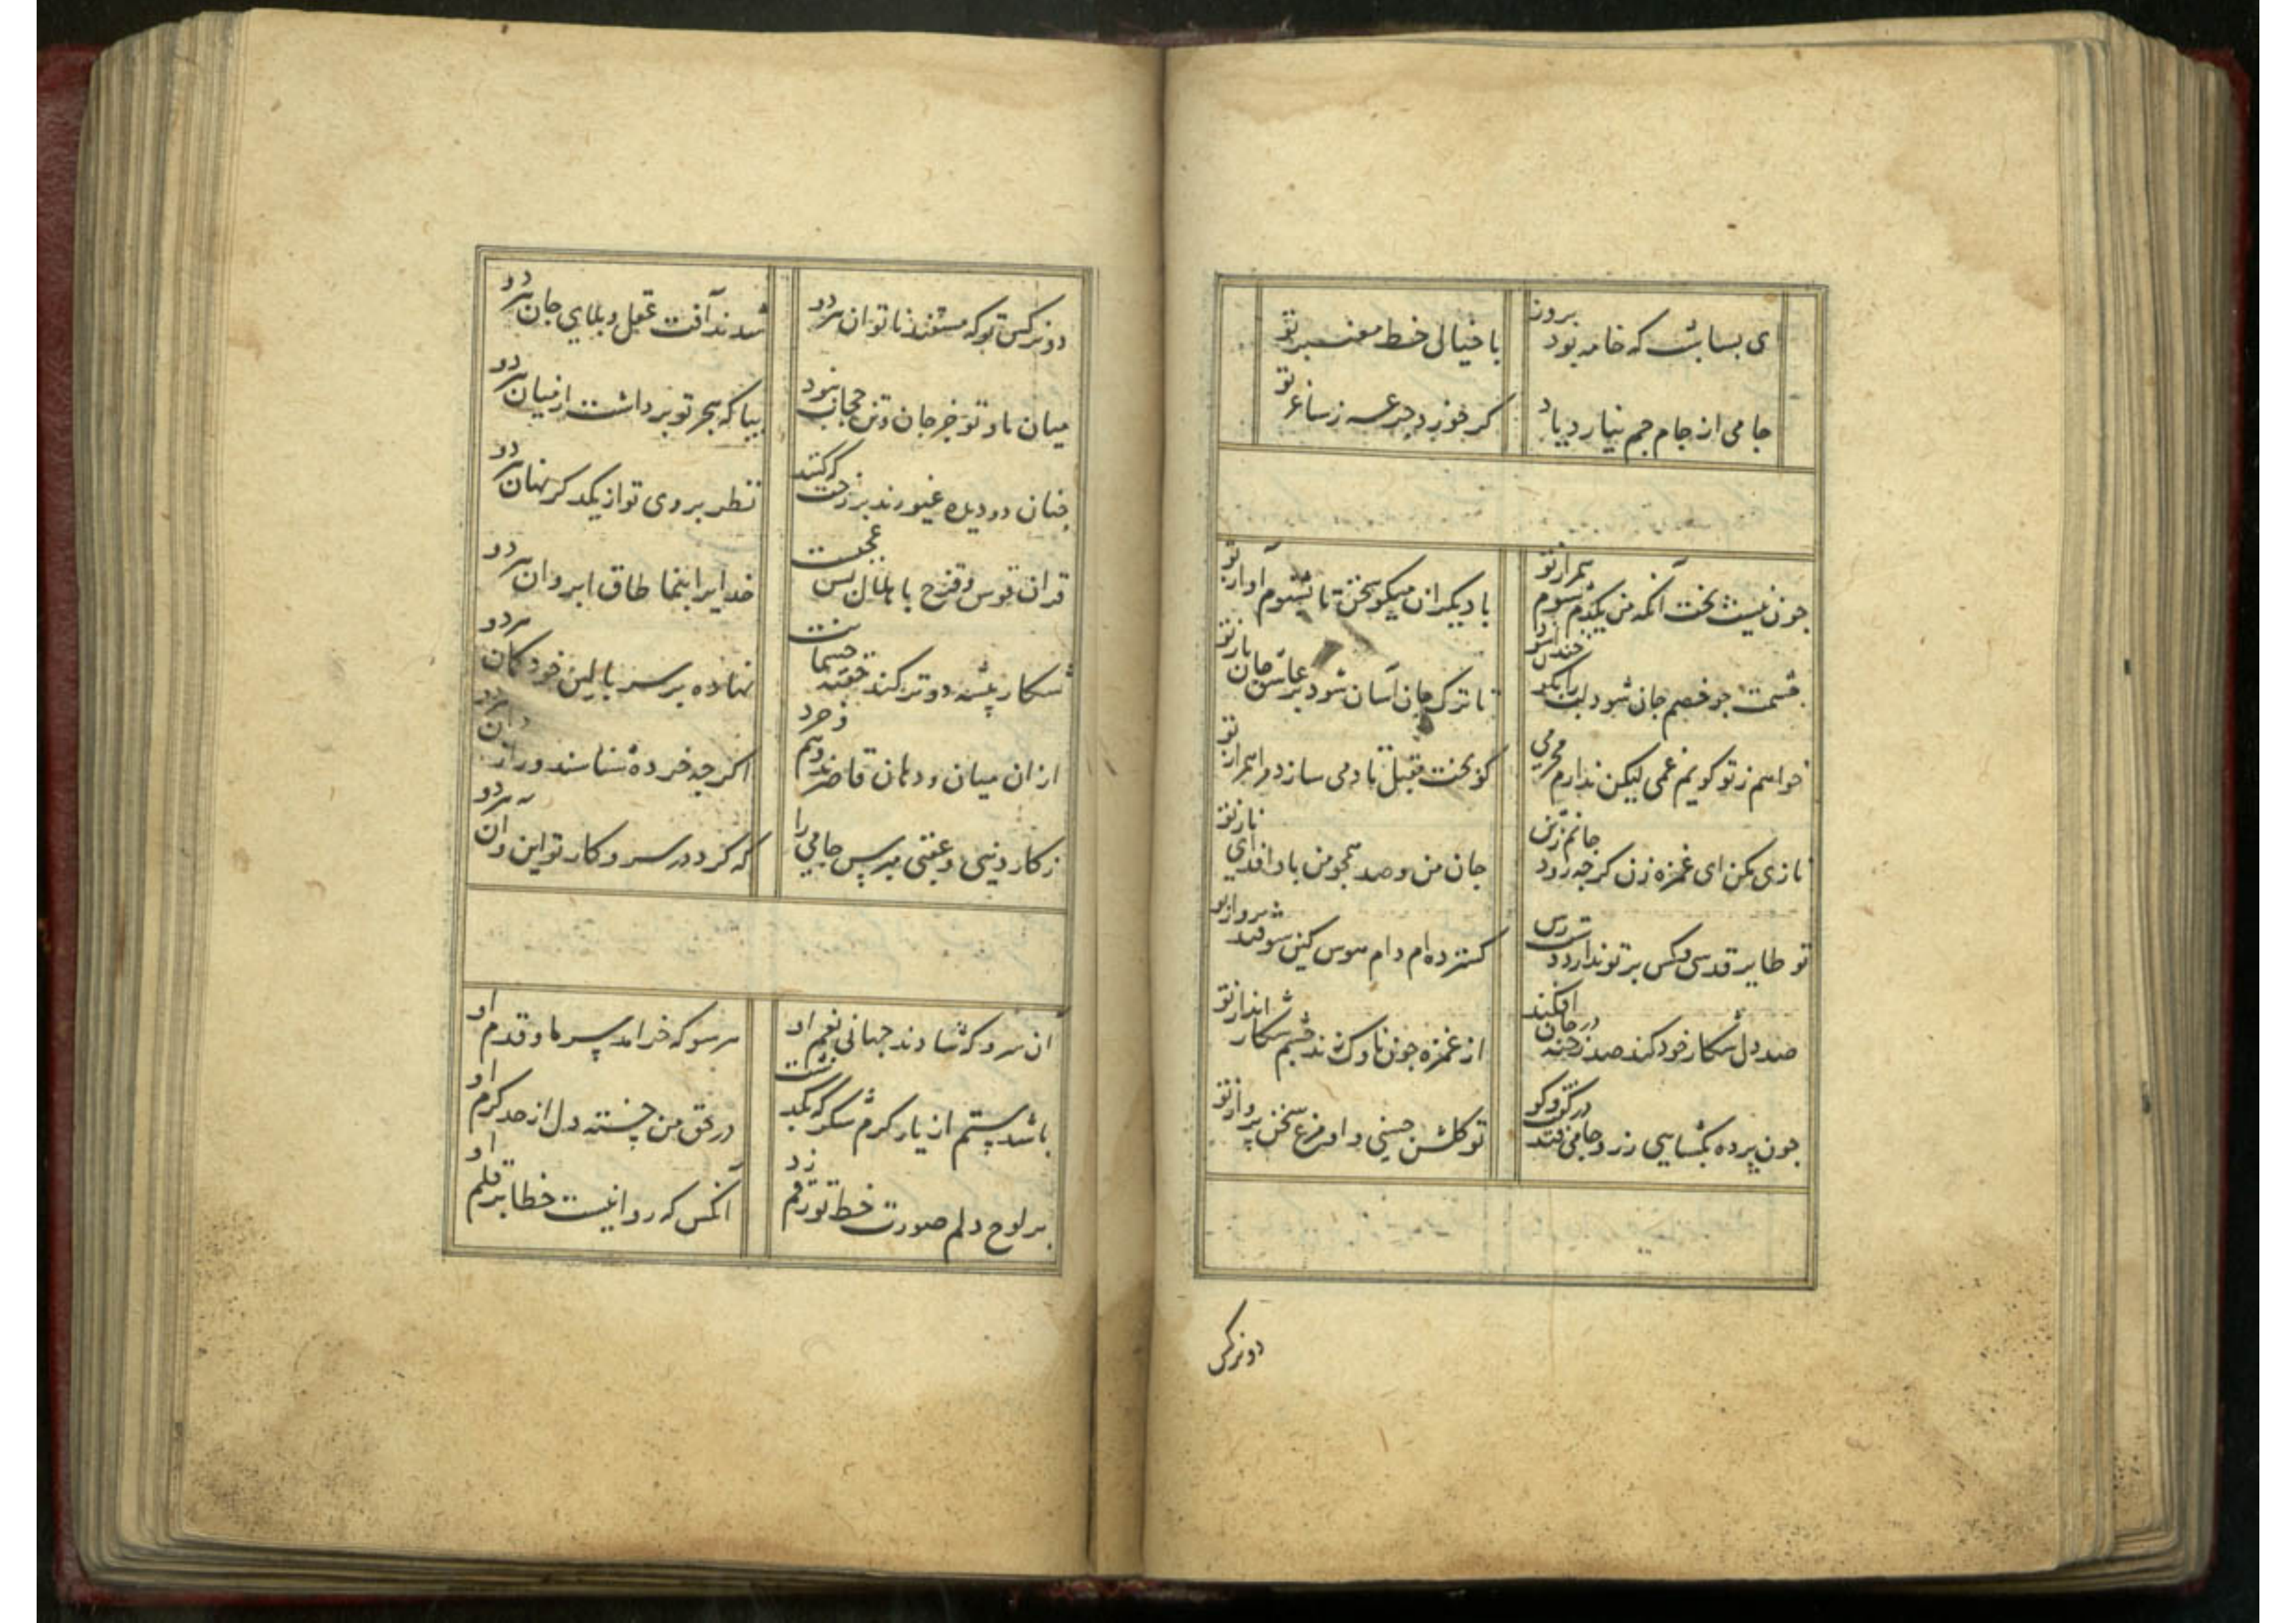 ای بسا شب که خامه بود برون
با خیالی خط معنبر تو
جامی از جام جم نیارد یاد
کر خورد جرعه ز ساغر تو
چون نیست بخت آنکه من یکدم شوم همراز تو
با دیکران میکو سخن تا بشنوم آواز تو
چشمت چو خصم جان شود لب را بکو خندان شو
تا ترک جان آسان شود بر عاشق جان باز تو
خواهم ز تو کویم غمی لیکن ندارم محرمی
کو بخت مقبل تا دمی سازد مرا همراز تو
نازی بکن ای غمزه زن کرچه رود جانم ز تن
جان من و صد همچو من بادا فدای ناز تو
تو طایر قدسی و کس بر تو ندارد دست رس
کسترده ام دام هوس کین سو فتد پرواز تو
صد دل شکار خود کند صد رخنه در جان افکند
از غمزه چون ناوک زند چشم شکار انداز تو
چون پرده بکشایی ز رو جامی فتد در کفت و کو
تو کلشن حسنی و او مرغ سخن پرداز تو
دو نرکس
دو نرکس تو که مستند ناتوان هر دو
شدند آفت عقل و بلای جان هر دو
میان ما و تو جز جان و تن حجاب نبود
بیا که هجر تو برداشت از میان هر دو
چنان دو دیده غیورند بر رخت که کنند
نظر بروی تو از یکدکر نهان هر دو
قران قوس و قزح با هلال بس عجبست
خدایرا بنما طاق ابروان هر دو
شکار پیشه دو ترکند خفته چشمانت
نهاده بر سر بالین خود کمان هر دو
از ان میان و دهان قاصرند وهم و خرد
اکرچه خرده شناسند و راز دان هر دو
ز کار دنیی و عقبی مپرس جامی را
که کرد در سر و کار تو این و آن هر دو
ان سرو که شادند جهانی بغم او
هر سو که خرامد سر ما و قدم او
باشد ستم از یار کرم شکر که بکذشت
در حق من خسته دل از حد کرم او
بر لوح دلم صورت خط تو رقم زد
آنکس که روا نیست خطا بر قلم او